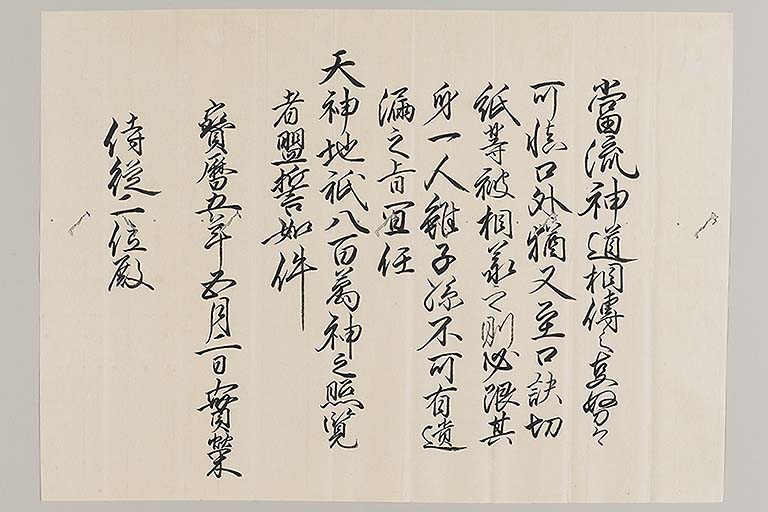 當流神道相傳之事努々
可慎口外猶又至口訣切
紙等被相承之則必限其
身一人雖子孫不可有遺
漏之旨宜任
天神地祇八百萬神之照覧
者盟誓如件
寳暦五年五月二日實榮
侍従二位殿